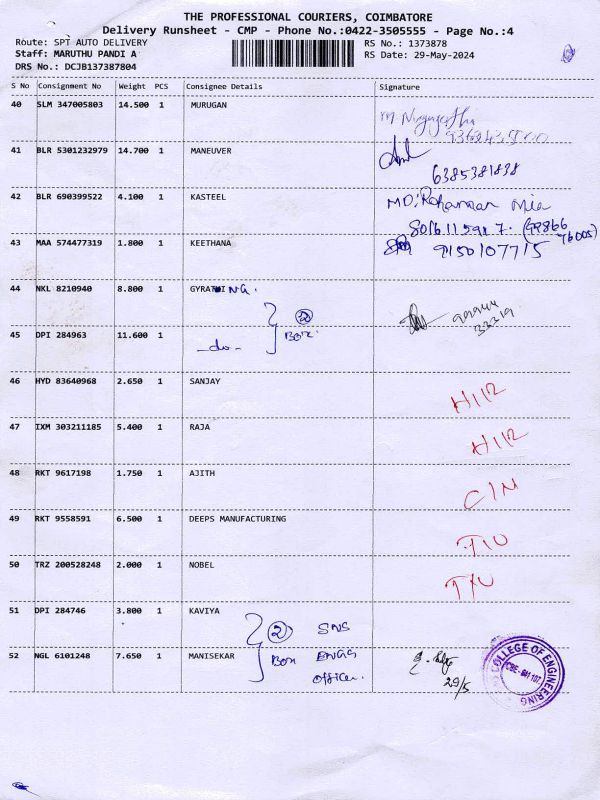 THE PROFESSIONAL COURIERS, COIMBATORE
Delivery Runsheet - CMP - Phone No.:0422-3505555 - Page No.:4
Route: SPT AUTO DELIVERY RS No.: 1373878
Staff: MARUTHU PANDI A RS Date: 29-May-2024
DRS No.: DCJB137387804
S No Consignment No Weight PCS Consignee Details Signature
40 SLM 347005803 14.500 1 MURUGAN
41 BLR 5301232979 14.700 1 MANEUVER
6385381838
42 BLR 690399522 4.100 1 KASTEEL MD:
43 MAA 574477319 1.800 1 KEETHANA 9150107715
44 NKL 8210940 8.800 1 GYRATHING.
2 Box.
99944
33319
45 DPI 284963 11.600 1 -do-
46 HYD 83640968 2.650 1 SANJAY H/R
47 IXM 303211185 5.400 1 RAJA H/R
48 RKT 9617198 1.750 1 AJITH C/N
49 RKT 9558591 6.500 1 DEEPS MANUFACTURING T/U
50 TRZ 200528248 2.000 1 NOBEL T/U
51 DPI 284746 3.800 1 KAVIYA 2 SNS
52 NGL 6101248 7.650 1 MANISEKAR Box ENGG
Officer.
29/5
COLLEGE OF ENGINEERING